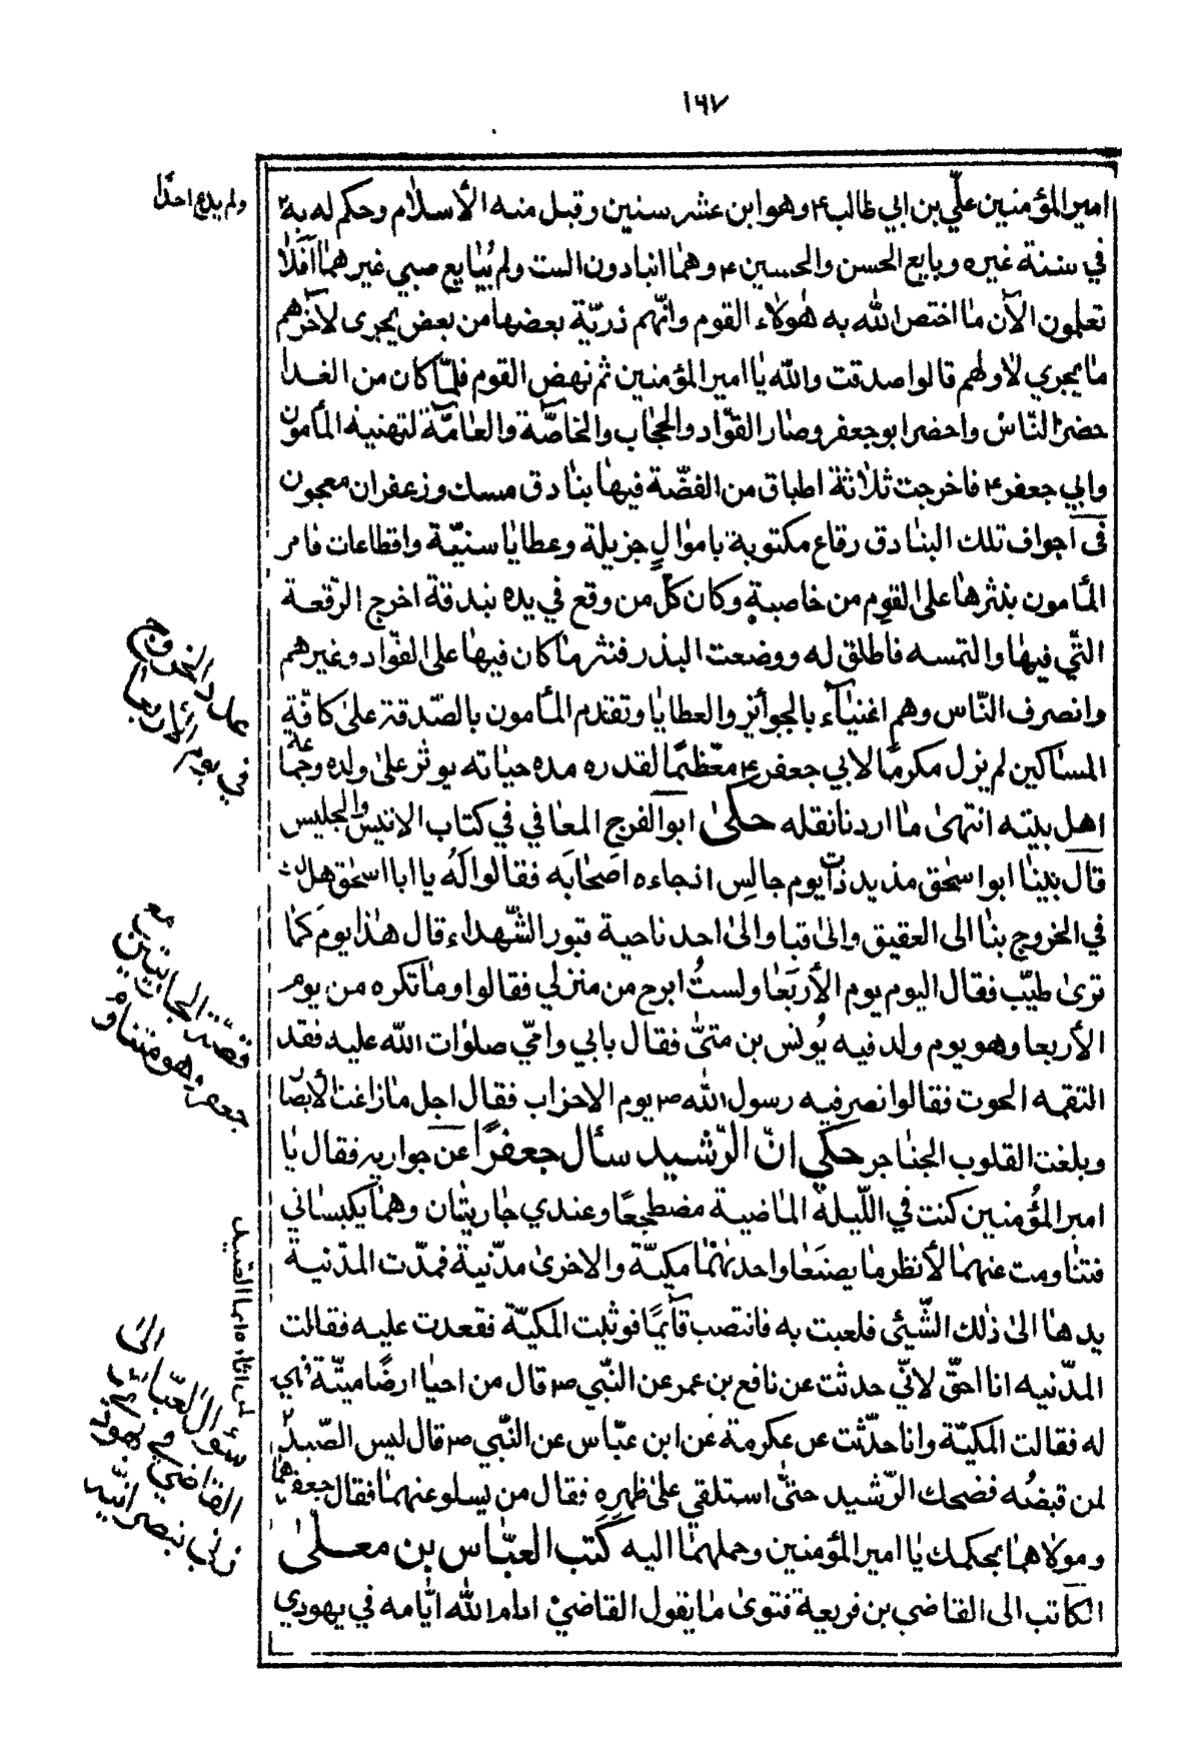 ١٦٧
امير المؤمنين عليّ بن ابي طالب ع وهو ابن عشر سنين وقبل منه الأسلام وحكم له به
ولم يدع احدًا
في سنة غيره وبايع الحسن والحسين ع وهما ابنا دون الست ولم يُبايع صبي غيرهما أفلا
تعلمون الآن ما اختص الله به هولاء القوم وانّهم ذريّة بعضها من بعض يجرى لآخرهم
ما يجري لاولهم قالوا صدقت والله يا امير المؤمنين ثم نهض القوم فلمّا كان من الغد
حضر النّاس واحضر ابو جعفر وصار القوّاد والحجاب والخاصّة والعامّة لتهنيه المأمون
وابي جعفر ع فاخرجت ثلاثة اطباق من الفضّة فيها بنادق مسك وزعفران معجون
في اجواف تلك البنادق رقاع مكتوبة باموالٍ جزيلة وعطايا سنيّة واقطاعات فامر
المأمون بنثرها على القوم من خاصبة وكان كلّ من وقع في يده بندقة اخرج الرّقعة
التّي فيها والتمسه فاطلق له ووضعت البذر فنثر ما كان فيها على القوّاد وغيرهم
وانصرف النّاس وهم اغنيآء بالجوائز والعطايا وتقدم المأمون بالصّدقة على كافّة
المساكين لم يزل مكرمًا لابي جعفر ع معظّمًا لقدره مده حياته يوثر على ولده وجماعة
اهل بيته انتهى ما اردنا نقله حكى ابو الفرج المعافي في كتاب الانيس والجليس
قال بينا ابو اسحق مذيد ذات يوم جالس اذ جاءه اصحابه فقالوا له يا ابا اسحق هل لك
في الخروج بنا الى العقيق والى قبا والى احد ناحية قبور الشّهداء قال هذا يوم كما
ترى طيّب فقال اليوم يوم الأربعا ولستُ ابرح من منزلي فقالوا وما تكره من يوم
الأربعا وهو يوم ولد فيه يُونس بن متىّ فقال بابي وامّي صلوات الله عليه فقد
التقمه الحوت فقالوا نصر فيه رسول الله ص يوم الاحزاب فقال اجل ما زاغت الأبصار
وبلغت القلوب الحناجر حكي انّ الرّشيد سأل جعفرًا عن جواريه فقال يا
امير المؤمنين كنت في اللّيلة الماضية مضطجعًا وعندي جاريتان وهما يكبساني
فتناومت عنهما لأنظر ما يصنعا واحدتهما مكيّة والاخرى مدّنية فمدّت المدّنية
يدها الى ذلك الشّيئ فلعبت به فانتصب قآيمًا فوثبت المكيّة فقعدت عليه فقالت
المدّنيه انا احقّ لانّي حدثت عن نافع بن عمر عن النّبي ص قال من احيا ارضًا ميتّة فهي
له فقالت المكيّة وانا حدّثت عن عكرمة عن ابن عبّاس عن النّبي ص قال ليس الصّيد
لمن اثاره انما الصّيد
لمن قبضه فضحك الرّشيد حتّى استلقي على ظهره فقال من يسلو عنهما فقال جعفر هما
ومولاهما بحكمك يا امير المؤمنين وحملهما اليه كتب العبّاس بن معلىّ
الكاتب الى القاضي بن قريعة فتوى ما يقول القاضي ادام الله ايّامه في يهودي
عدد الخروج
في يوم الأربعا
قصّة الجاريتين مع
جعفر وهو متناوم
سؤال العبّاس الى
القاضي في يهودي
زني بنصرانّيه